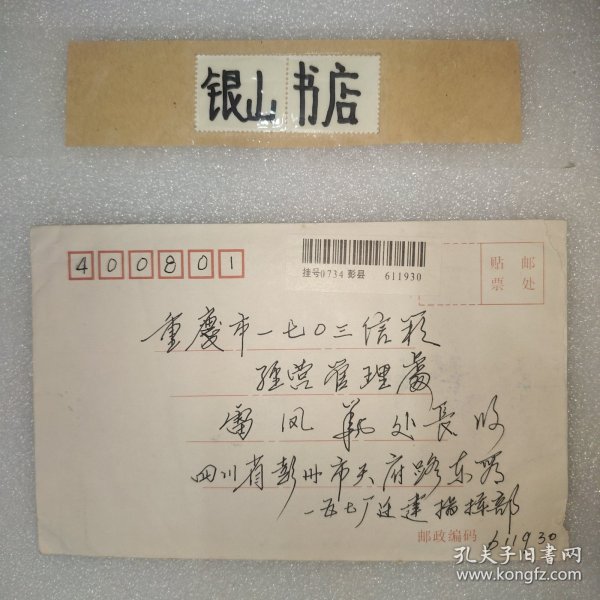 银山书店
400801
挂号0734 彭县 611930
贴 邮
票 处
重慶市一七〇三信箱
经营管理處
雷凤 处長收
四川省彭州市天府路东段
一五七厂迁建指挥部
邮政编码 611930
孔夫子旧书网
www.kongfz.com